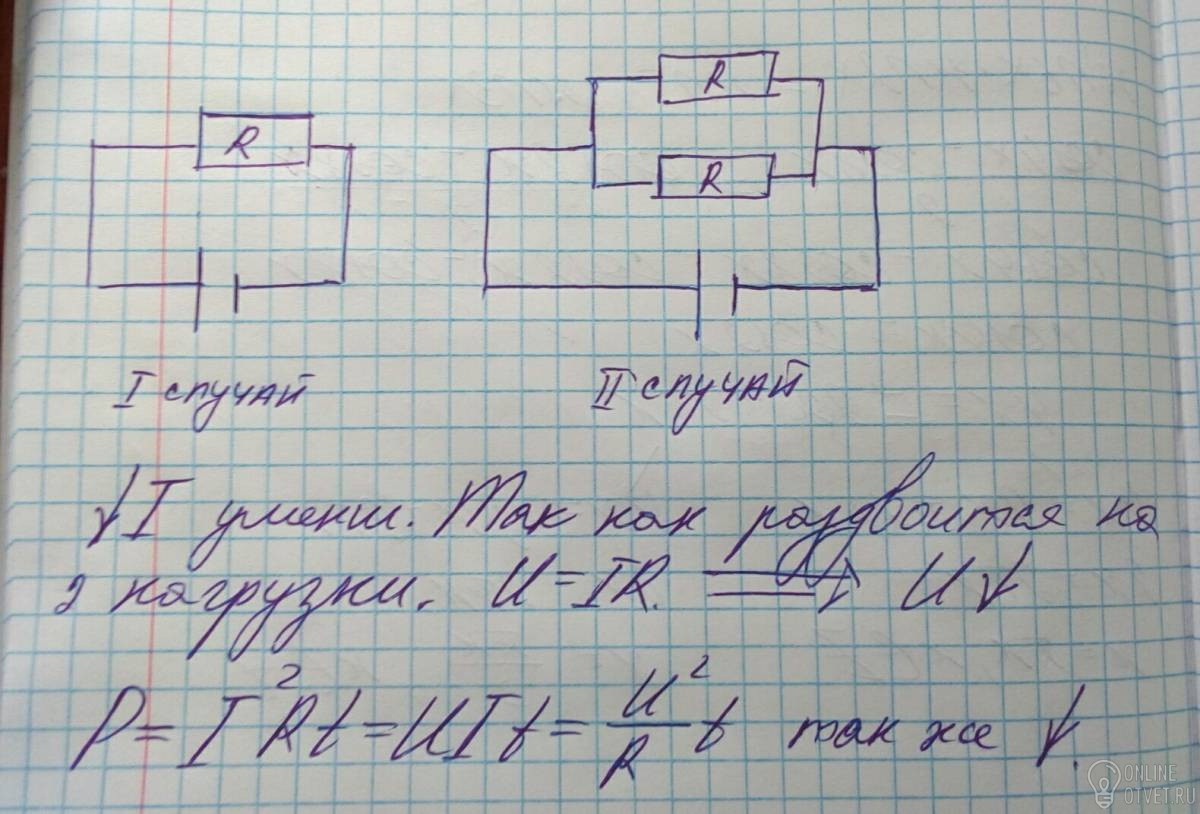 R
R
R
I случай
II случай
↓ I уменш. Так как раздвоится на
2 нагрузки. U = IR. ⟹ U↓
P = I²Rt = UIt = U²/R t так же ↓.
ONLINE
OTVET.RU